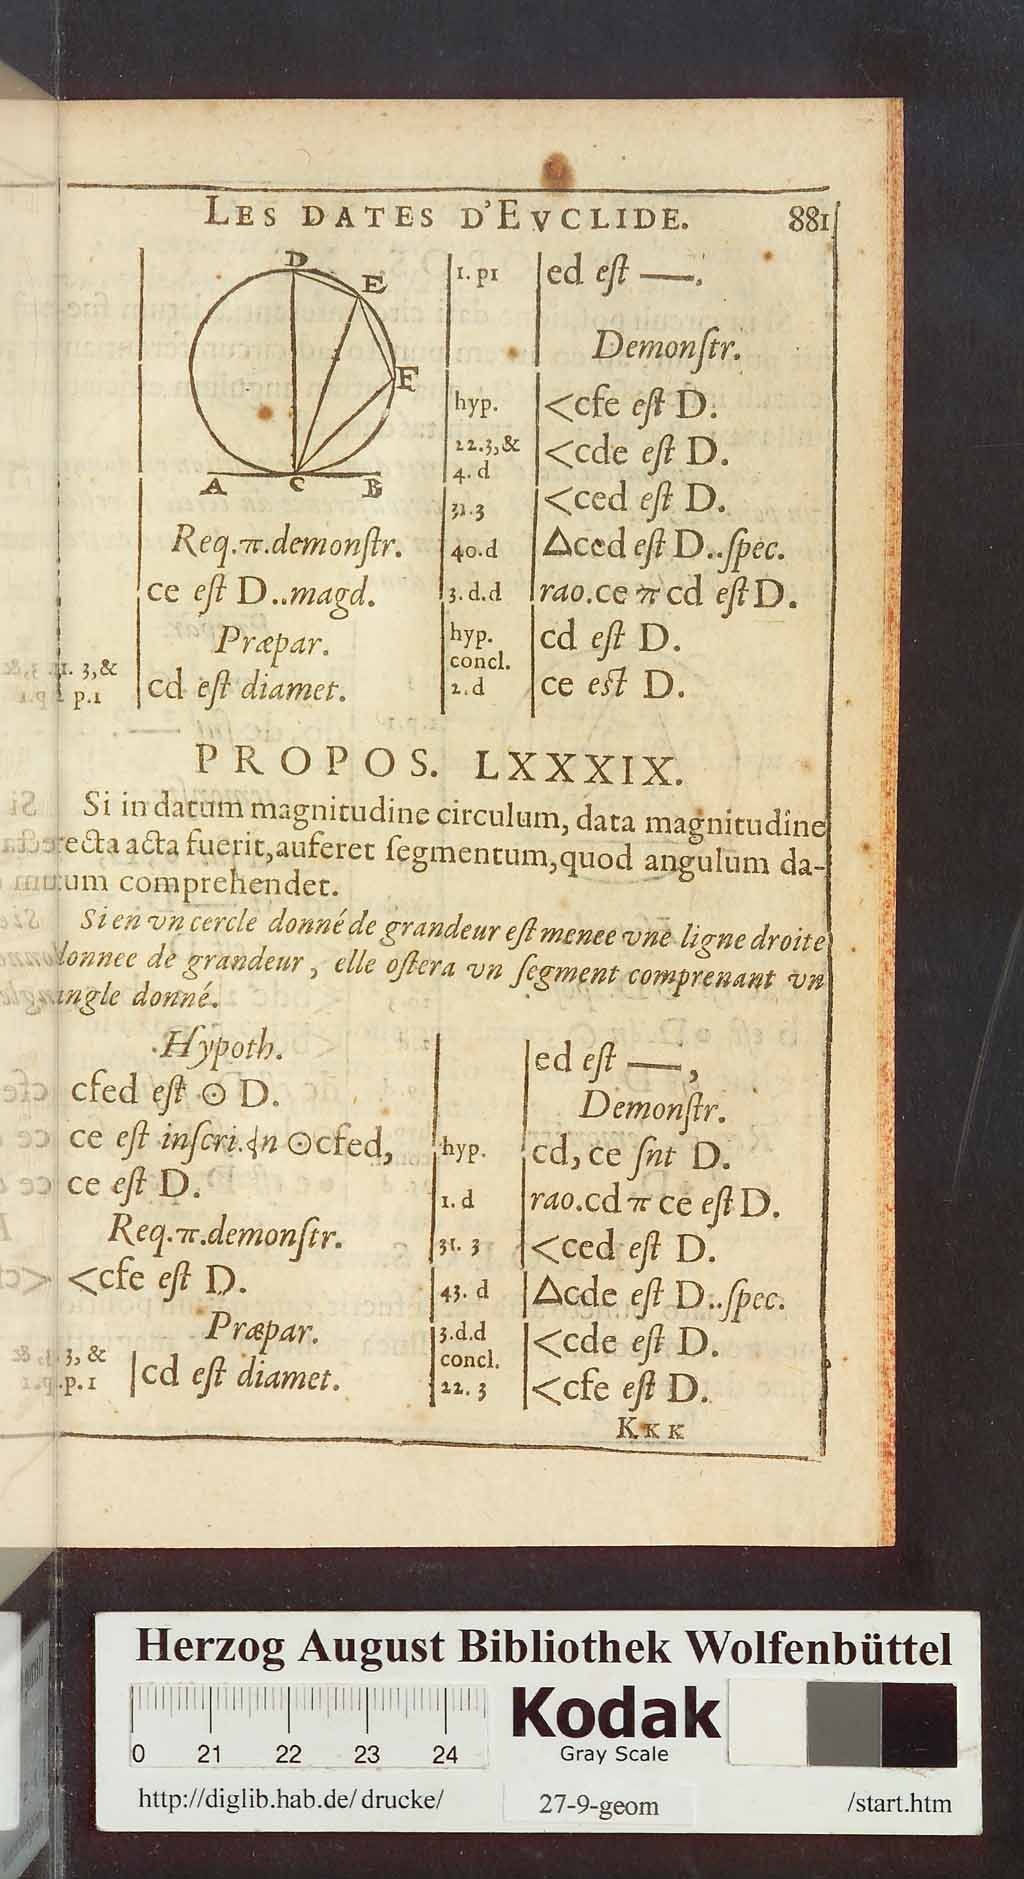 LES DATES D'EVCLIDE. 881
D
E
F
A C B
Req.π.demonſtr.
ce eſt D..magd.
Præpar.
1. 3,& p.1 cd eſt diamet.
1. p1 ed eſt —.
Demonſtr.
hyp. <cfe eſt D.
22.3,& 4. d <cde eſt D.
31.3 <ced eſt D.
40.d △ced eſt D..ſpec.
3. d.d rao.ce π cd eſt D.
hyp. cd eſt D.
concl.
2.d ce eſt D.
PROPOS. LXXXIX.
Si in datum magnitudine circulum, data magnitudine
recta acta fuerit, auferet ſegmentum, quod angulum da-
tum comprehendet.
Si en vn cercle donné de grandeur eſt menee vne ligne droite
donnee de grandeur, elle oſtera vn ſegment comprenant vn
angle donné.
Hypoth.
cfed eſt ⊙ D.
ce eſt inſcri. ⊙cfed,
ce eſt D.
Req.π.demonſtr.
<cfe eſt D.
Præpar.
3, & p.1 cd eſt diamet.
ed eſt —,
Demonſtr.
hyp. cd, ce ſnt D.
1. d rao.cd π ce eſt D.
31. 3 <ced eſt D.
43. d △cde eſt D..ſpec.
3.d.d <cde eſt D.
concl.
22. 3 <cfe eſt D.
Kkk
Herzog August Bibliothek Wolfenbüttel
0 21 22 23 24
Kodak
Gray Scale
http://diglib.hab.de/drucke/ 27-9-geom /start.htm